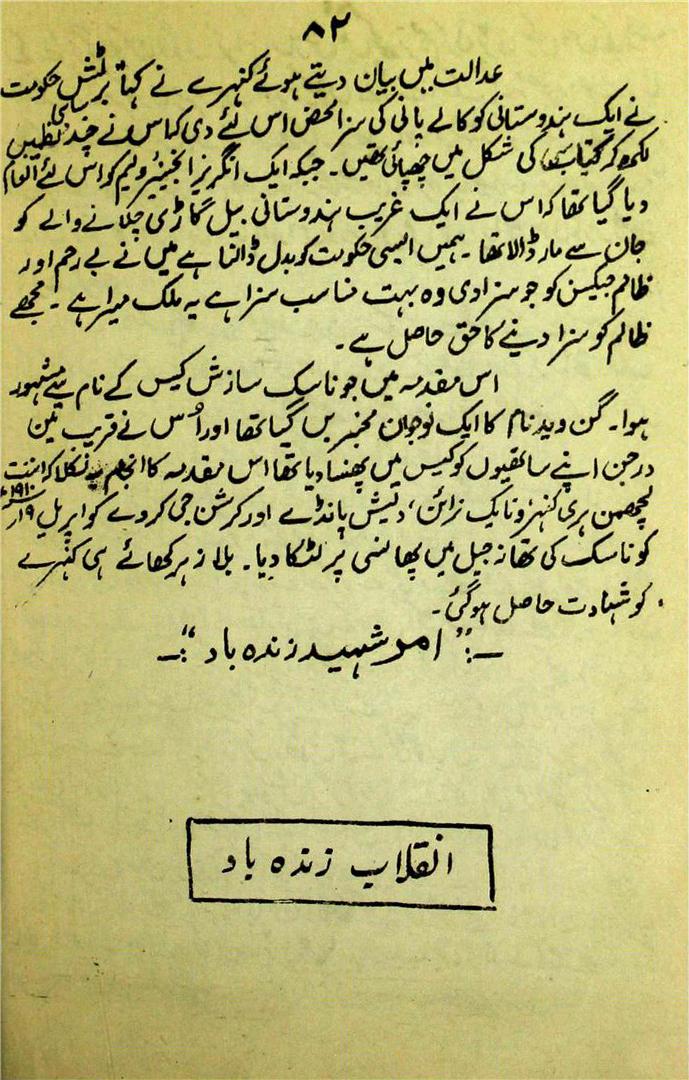 ۸۲
عدالت میں بیان دیتے ہوئے کنہرے نے کہا "برٹش حکومت
نے ایک ہندوستانی کو کالے پانی کی سزا محض اس لئے دی کہ اس نے چند نظمیں
لکھ کر کتاب کی شکل میں چھپائی تھیں۔ جبکہ ایک انگریز انجینیر ولیم کو اس لئے انعام
دیا گیا تھا کہ اس نے ایک غریب ہندوستانی بیل گاڑی چلانے والے کو
جان سے مار ڈالا تھا۔ ہمیں ایسی حکومت کو بدل ڈالنا ہے میں نے بے رحم اور
ظالم جیکسن کو جو سزا دی وہ بہت مناسب سزا ہے یہ ملک میرا ہے۔ مجھے
ظالم کو سزا دینے کا حق حاصل ہے۔
اس مقدمہ میں جو ناسک سازش کیس کے نام سے مشہور
ہوا۔ گن وید نام کا ایک نوجوان مخبر بن گیا تھا اور اُس نے قریب تین
درجن اپنے ساتھیوں کو کیس میں پھنسا دیا تھا اس مقدمہ کا انجام یہ نکلا کہ اننت
لچھمن ہری کنہرے ونایک نرائن، دیش پانڈے اور کرشن جی کروے کو ۱۹؍ اپریل ۱۹۱۰ء
کو ناسک کی تھانہ جیل میں پھانسی پر لٹکا دیا۔ بلا زہر کھائے ہی کنہرے
کو شہادت حاصل ہوگئی۔
—:" امر شہید زندہ باد ":—
انقلاب زندہ باد